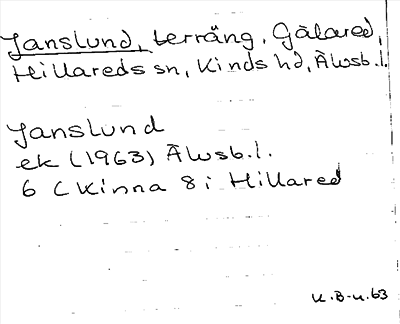 Janslund, terräng, Gålared,
Hillareds sn, Kinds hd, Älvsb.l.
Janslund
ek (1963) Älvsb.l.
6 C Kinna 8 i Hillared
K.B-n.63